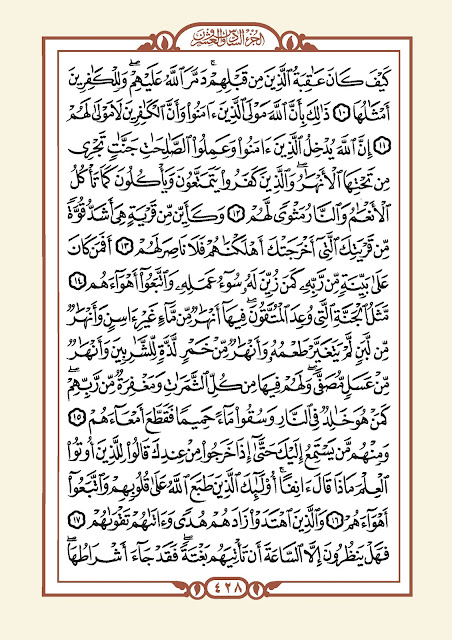 الجزء السادس والعشرون
كَيْفَ كَانَ عَٰقِبَةُ ٱلَّذِينَ مِن قَبْلِهِمْ ۚ دَمَّرَ ٱللَّهُ عَلَيْهِمْ ۖ وَلِلْكَٰفِرِينَ
أَمْثَٰلُهَا ١٠ ذَٰلِكَ بِأَنَّ ٱللَّهَ مَوْلَى ٱلَّذِينَ ءَامَنُوا۟ وَأَنَّ ٱلْكَٰفِرِينَ لَا مَوْلَىٰ لَهُمْ
١١ إِنَّ ٱللَّهَ يُدْخِلُ ٱلَّذِينَ ءَامَنُوا۟ وَعَمِلُوا۟ ٱلصَّٰلِحَٰتِ جَنَّٰتٍ تَجْرِى
مِن تَحْتِهَا ٱلْأَنْهَٰرُ ۖ وَٱلَّذِينَ كَفَرُوا۟ يَتَمَتَّعُونَ وَيَأْكُلُونَ كَمَا تَأْكُلُ
ٱلْأَنْعَٰمُ وَٱلنَّارُ مَثْوًى لَّهُمْ ١٢ وَكَأَيِّن مِّن قَرْيَةٍ هِىَ أَشَدُّ قُوَّةً
مِّن قَرْيَتِكَ ٱلَّتِىٓ أَخْرَجَتْكَ أَهْلَكْنَٰهُمْ فَلَا نَاصِرَ لَهُمْ ١٣ أَفَمَن كَانَ
عَلَىٰ بَيِّنَةٍ مِّن رَّبِّهِۦ كَمَن زُيِّنَ لَهُۥ سُوٓءُ عَمَلِهِۦ وَٱتَّبَعُوٓا۟ أَهْوَآءَهُم ١٤
مَّثَلُ ٱلْجَنَّةِ ٱلَّتِى وُعِدَ ٱلْمُتَّقُونَ ۖ فِيهَآ أَنْهَٰرٌ مِّن مَّآءٍ غَيْرِ ءَاسِنٍ وَأَنْهَٰرٌ
مِّن لَّبَنٍ لَّمْ يَتَغَيَّرْ طَعْمُهُۥ وَأَنْهَٰرٌ مِّنْ خَمْرٍ لَّذَّةٍ لِّلشَّٰرِبِينَ وَأَنْهَٰرٌ
مِّنْ عَسَلٍ مُّصَفًّى ۖ وَلَهُمْ فِيهَا مِن كُلِّ ٱلثَّمَرَٰتِ وَمَغْفِرَةٌ مِّن رَّبِّهِمْ ۖ
كَمَنْ هُوَ خَٰلِدٌ فِى ٱلنَّارِ وَسُقُوا۟ مَآءً حَمِيمًا فَقَطَّعَ أَمْعَآءَهُمْ ١٥
وَمِنْهُم مَّن يَسْتَمِعُ إِلَيْكَ حَتَّىٰٓ إِذَا خَرَجُوا۟ مِنْ عِندِكَ قَالُوا۟ لِلَّذِينَ أُوتُوا۟
ٱلْعِلْمَ مَاذَا قَالَ ءَانِفًا ۚ أُو۟لَٰٓئِكَ ٱلَّذِينَ طَبَعَ ٱللَّهُ عَلَىٰ قُلُوبِهِمْ وَٱتَّبَعُوٓا۟
أَهْوَآءَهُمْ ١٦ وَٱلَّذِينَ ٱهْتَدَوْا۟ زَادَهُمْ هُدًى وَءَاتَىٰهُمْ تَقْوَىٰهُمْ ١٧
فَهَلْ يَنظُرُونَ إِلَّا ٱلسَّاعَةَ أَن تَأْتِيَهُم بَغْتَةً ۖ فَقَدْ جَآءَ أَشْرَاطُهَا ۚ
٤٢٨